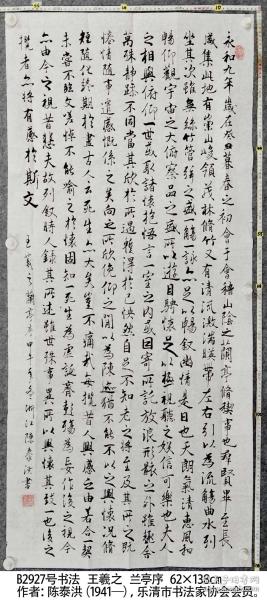 永和九年歲在癸丑暮春之初會于會稽山陰之蘭亭脩禊事也群賢畢至少長
咸集此地有崇山峻嶺茂林脩竹又有清流激湍映帶左右引以為流觴曲水列
坐其次雖無絲竹管弦之盛一觴一詠亦足以暢敘幽情是日也天朗氣清惠風和
暢仰觀宇宙之大俯察品類之盛所以遊目騁懷足以極視聽之娛信可樂也夫人
之相與俯仰一世或取諸懷抱悟言一室之內或因寄所託放浪形骸之外雖趣舍
萬殊靜躁不同當其欣於所遇暫得於己快然自足不知老之將至及其所之既
惓情隨事遷感慨係之矣向之所欣俛仰之間以為陳迹猶不能不以之興懷況脩
短隨化終期於盡古人云死生亦大矣豈不痛哉每攬昔人興感之由若合一契
未嘗不臨文嗟悼不能喻之於懷固知一死生為虛誕齊彭殤為妄作後之視今
亦由今之視昔悲夫故列敘時人錄其所述雖世殊事異所以興懷其致一也後之
攬者亦將有感於斯文
王羲之蘭亭序甲午年冬浙江陳泰洪書
B2927号书法 王羲之 兰亭序 62×138cm
作者：陈泰洪（1941—），乐清市书法家协会会员。